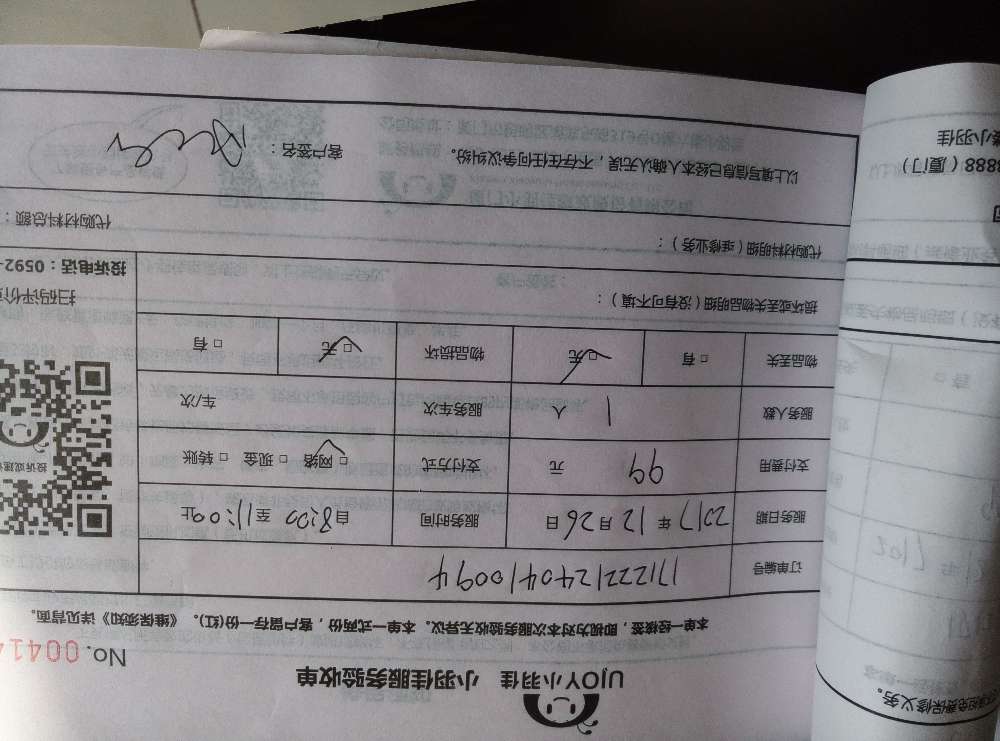 UJOY小羽佳 小羽佳服务验收单
No. 00414
本单一经接签，即视为对本次服务验收无异议。本单一式两份，客户留存一份(红)。《维保须知》详见背面。
订单编号 1712221240410094
服务日期 2017 年 12 月 26 日 服务时间 自 8:00 至 11:00 止
支付费用 99 元 支付方式 □ 网络 □ 现金 □ 转账
服务人数 1 人 服务车次 车/次
物品丢失 □ 有 □ 无 物品损坏 □ 无 □ 有
损坏或丢失物品明细（没有可不填）：
扫码评价
投诉电话：0592-
代购材料明细（维修业务）：
代购材料总额：
以上填写信息已经本人确认无误，不存在任何争议纠纷。
客户签名：
8888（厦门）
小羽佳
保修义务。